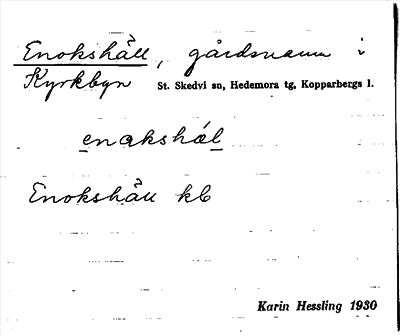 Enokshäll, gårdsnamn i
Kyrkbyn St. Skedvi sn, Hedemora tg, Kopparbergs l.
enakshǽl
Enokshäll kb
Karin Hessling 1930